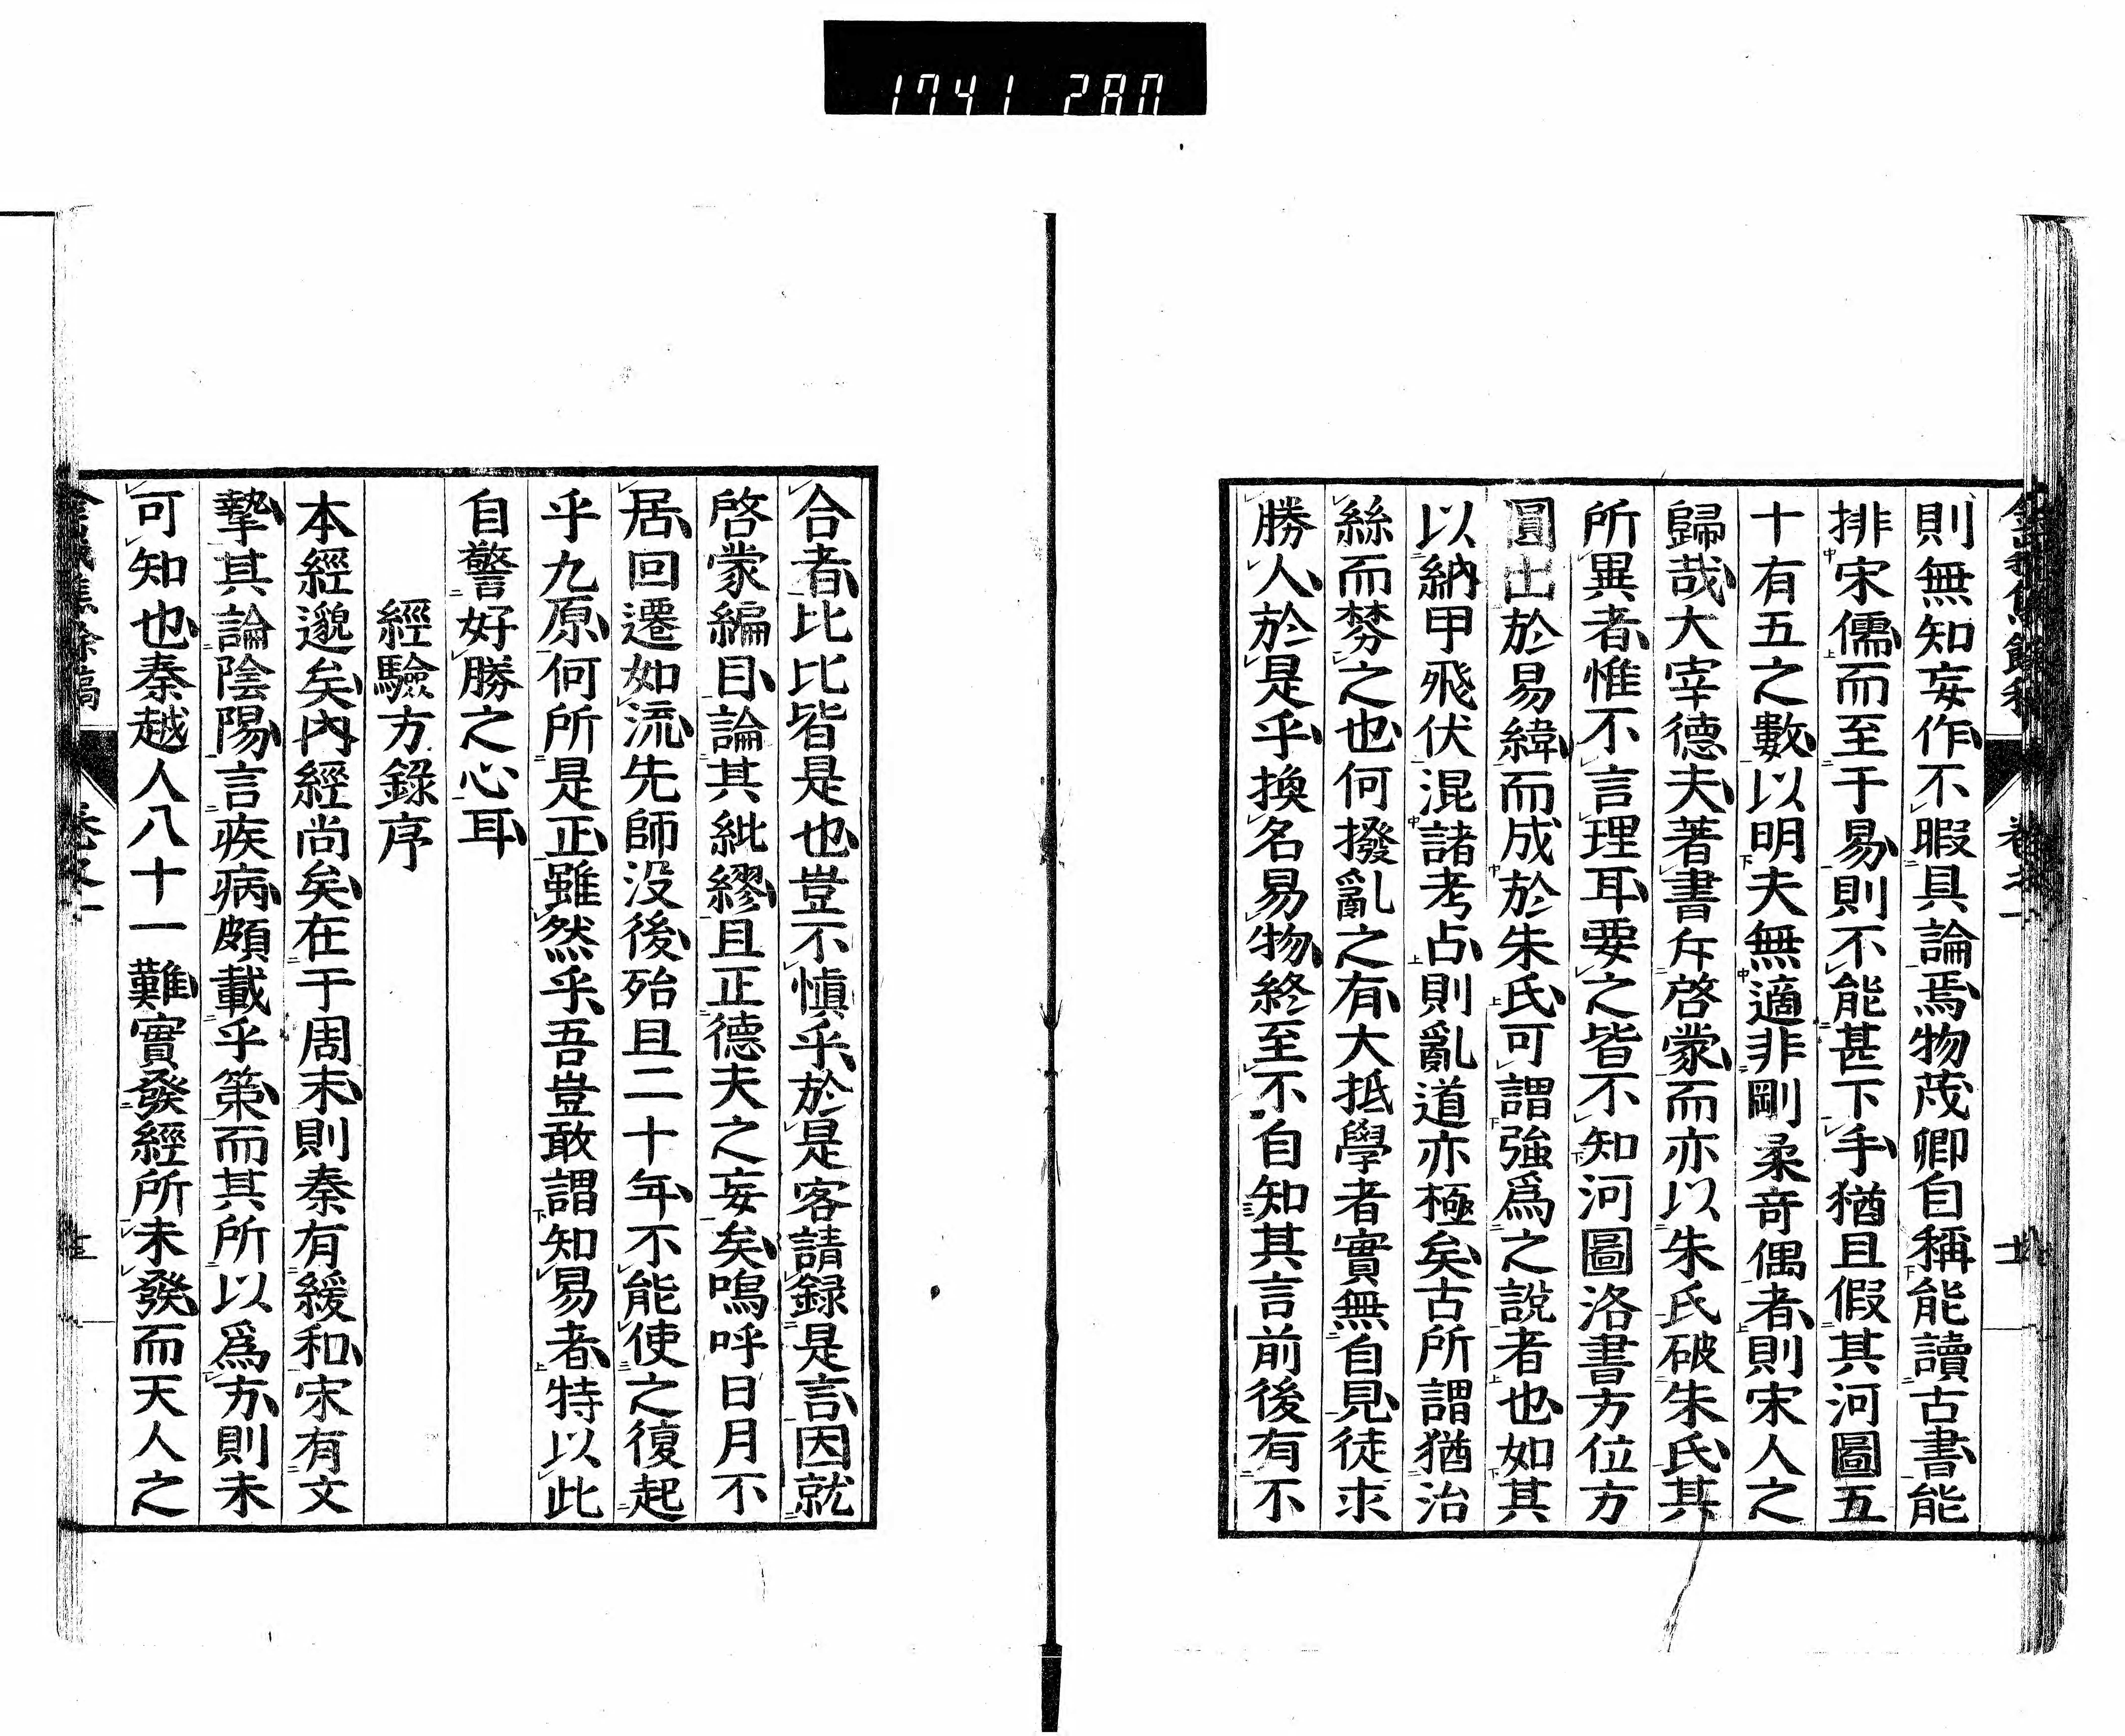 1741 280
則無知妄作不暇具論焉物茂卿自稱能讀古書能
排宋儒而至于易則不能甚下手猶且假其河圖五
十有五之數以明夫無適非剛柔奇偶者則宋人之
歸哉大宰德夫著書斥啓蒙而亦以朱氏破朱氏其
所異者惟不言理耳要之皆不知河圖洛書方位方
圓出於易緯而成於朱氏可謂強爲之說者也如其
以納甲飛伏混諸考占則亂道亦極矣古所謂猶治
絲而棼之也何撥亂之有大抵學者實無自見徒求
勝人於是乎換名易物終至不自知其言前後有不
合者比比皆是也豈不愼乎於是客請録是言因就
啓蒙編目論其紕繆且正德夫之妄矣嗚呼日月不
居回遷如流先師没後殆且二十年不能使之復起
乎九原何所是正雖然乎吾豈敢謂知易者特以此
自警好勝之心耳
經驗方錄序
本經邈矣內經尚矣在于周末則秦有緩和宋有文
摯其論陰陽言疾病頗載乎策而其所以爲方則未
可知也秦越人八十一難實發經所未發而天人之